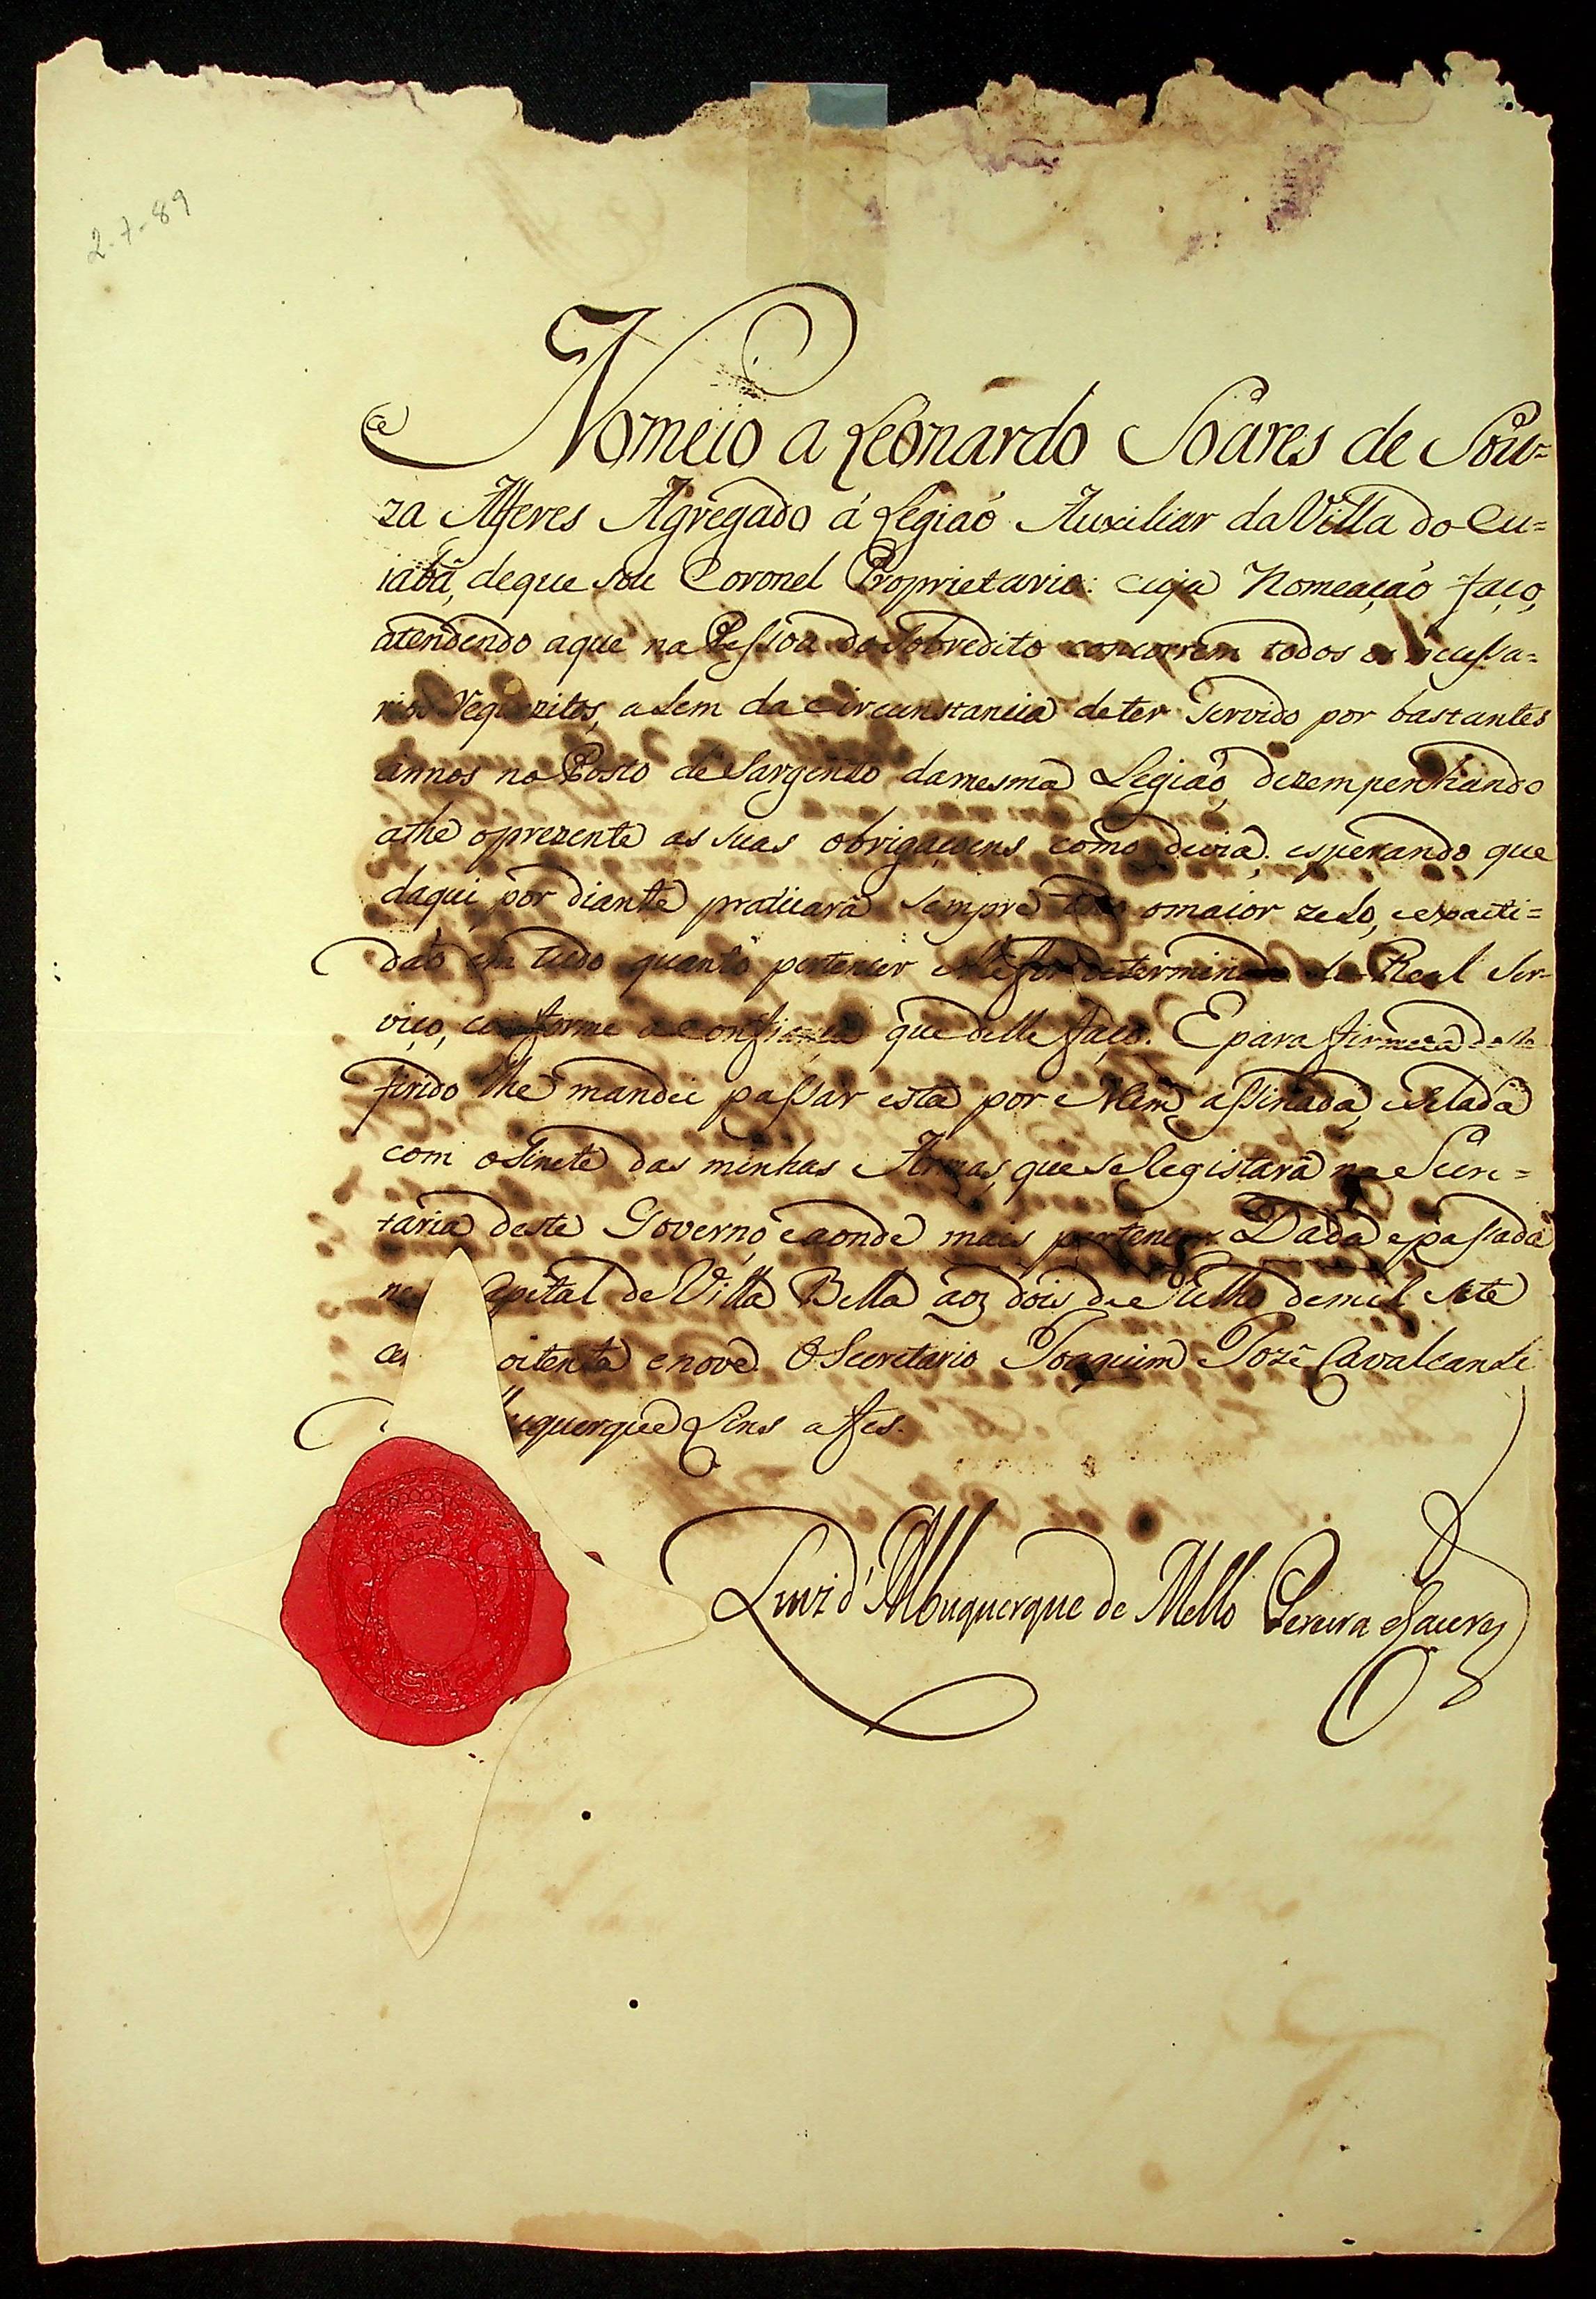 2-7-89
Nomeio a Leonardo Soares de Sou=
za Alferes Agregado á Legiaó Auxiliar da Villa do Cu=
iabá, deque sou Coronel Proprietario: cuja Nomeaçaó faço,
atendendo aque na Pessoa do Sobredito concorrem todos os necessa=
rios Requezitos, alem da circunstancia deter Servido por bastantes
annos no Posto de Sargento damesma Legiaó, dezempenhando
athe oprezente as suas obrigaçoens como devia, esperando que
daqui por diante praticará sempre omaior zelo, eexacti=
daó em tudo quanto pertencer determinado do Real Ser=
viço, conforme a confiança que delle faço. E para firmeza do Re
firido lhe mandei passar esta por Mim assinada, eSelada
com oSinete das minhas Armas, que se Registará na Secre=
taria deste Governo, eaonde mais pertencer. Dada epassada
na Capital de Villa Bella aos dois de Julho demil sete
ce oitenta enove. O Secretario Joaquim Jozé Cavalcante
lbuquerque Lins a fes.
Luiz d'Albuquerque de Mello Pereira eCaceres